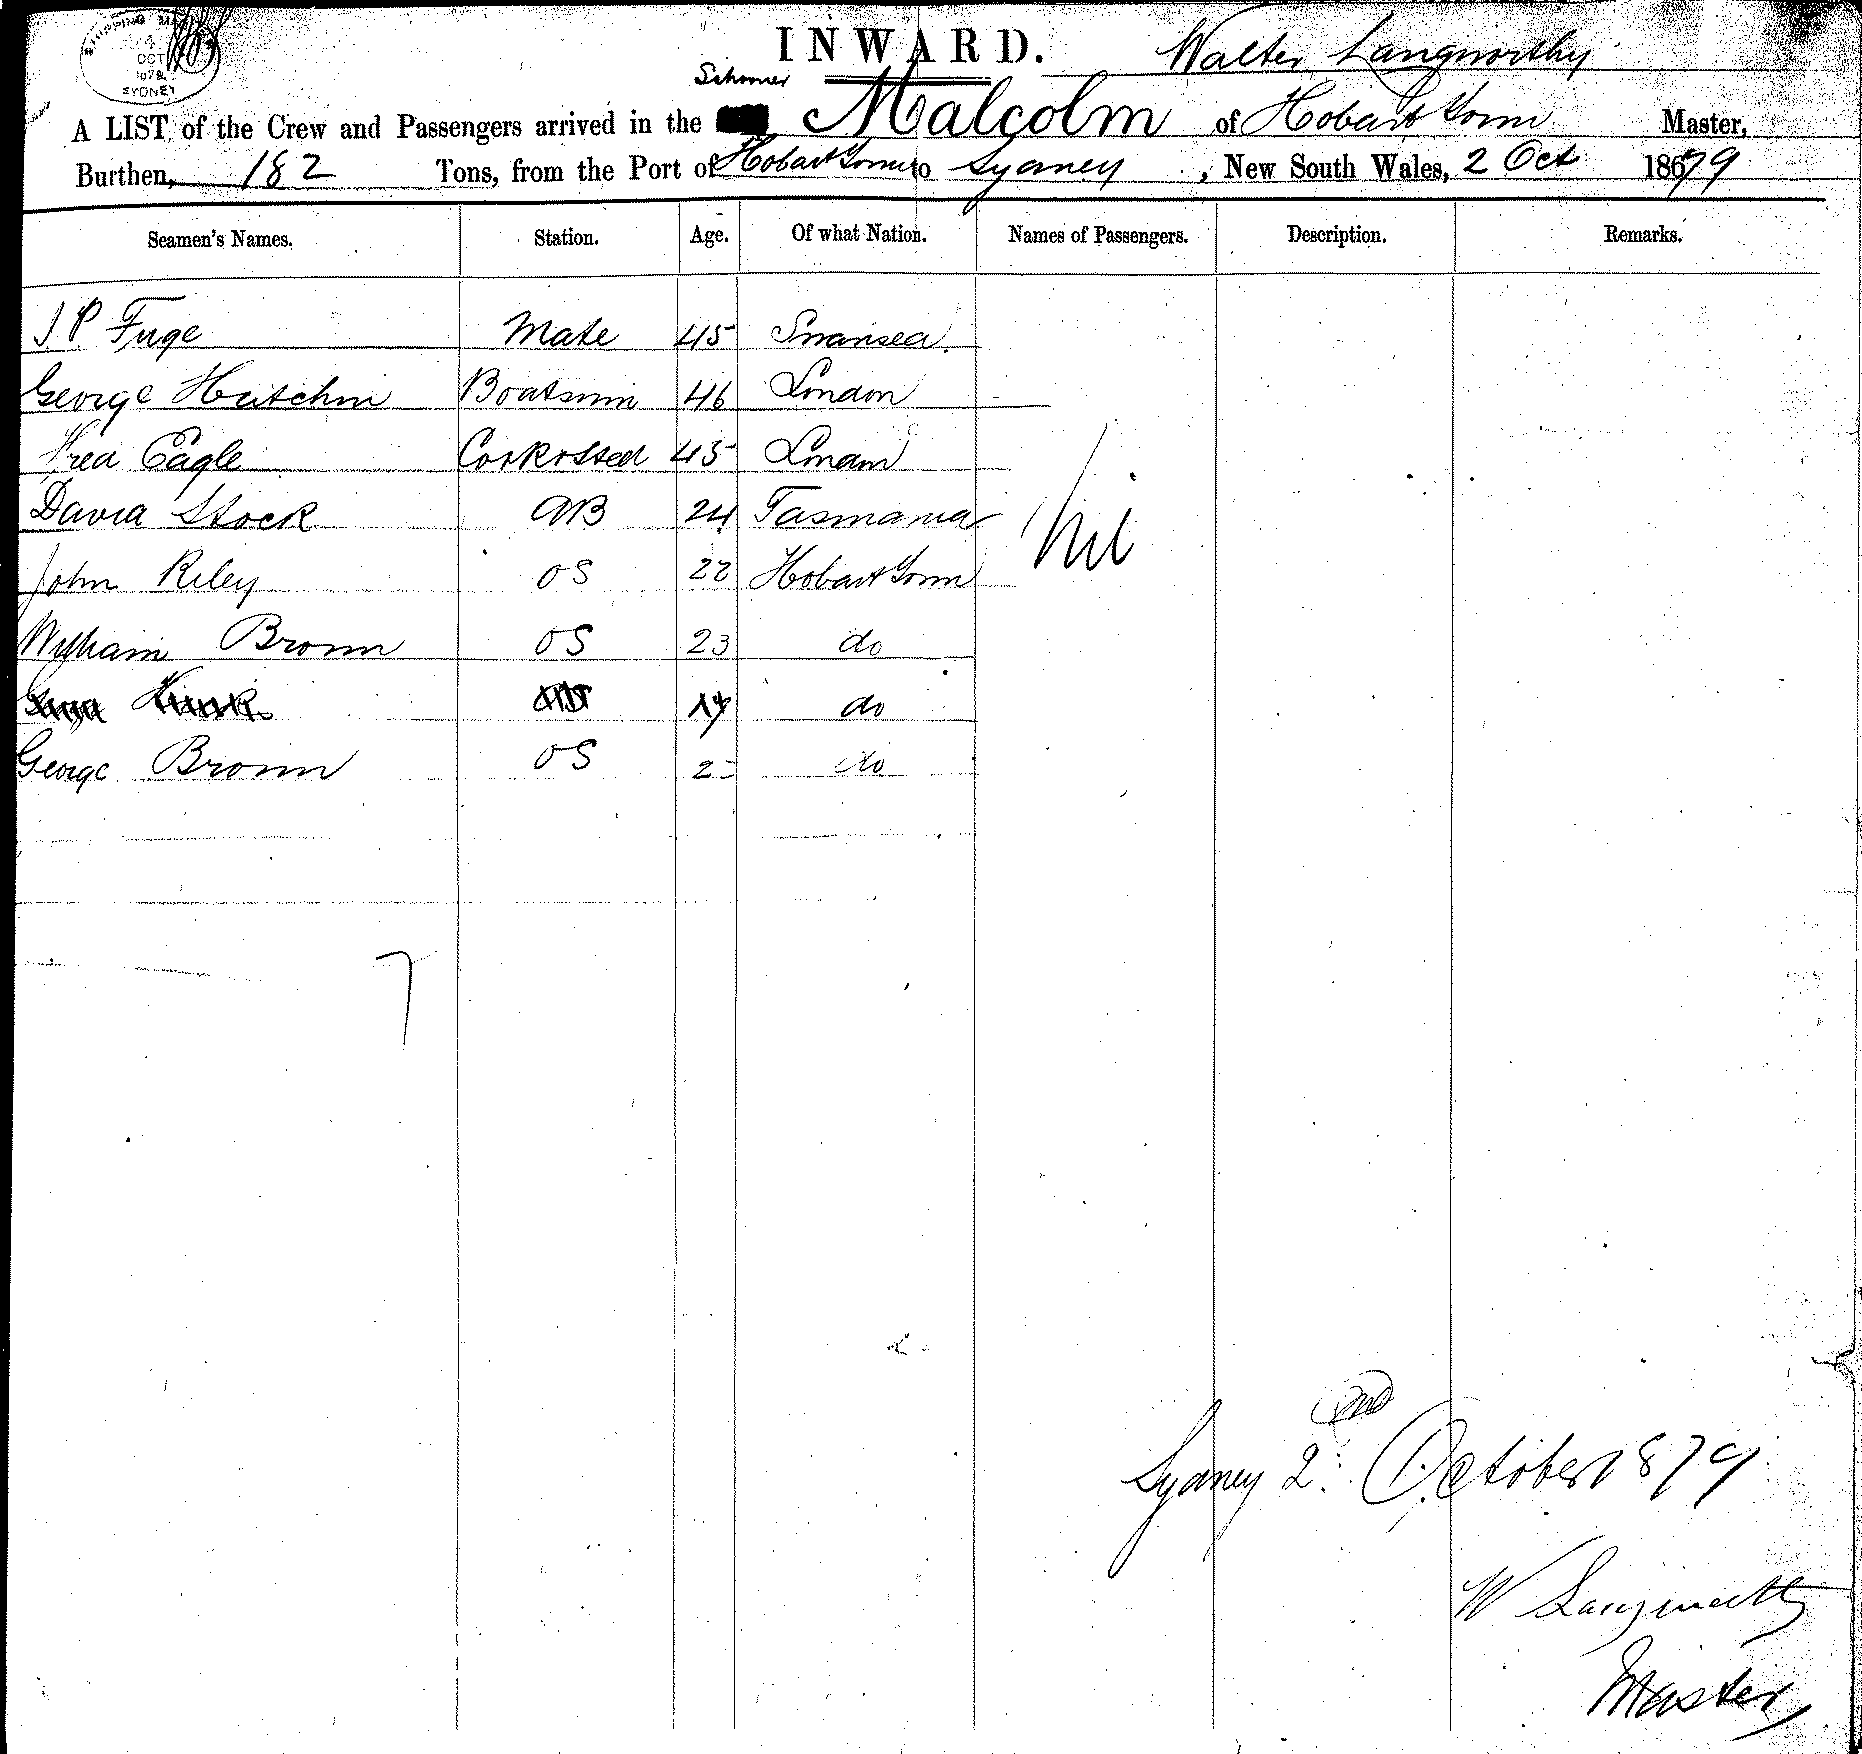 SHIPPING MA
OCT
1879
SYDNEY
INWARD. Walter Langworthy
Schooner
A LIST of the Crew and Passengers arrived in the Malcolm of Hobart Town Master,
Burthen, 182 Tons, from the Port of Hobart Town to Sydney, New South Wales, 2 Oct 1879
Seamen's Names. Station. Age. Of what Nation. Names of Passengers. Description. Remarks.
J P Fuge Mate 45 Swansea
George Hutchin Boatswin 46 London
Fred Eagle Cook & Sted 45 London
David Stock AB 24 Tasmania
Nil
John Riley OS 22 Hobart Town
William Brown OS 23 do
do
George Brown OS 2 do
7
Sydney 2nd October 1879
W Langworthy
Master